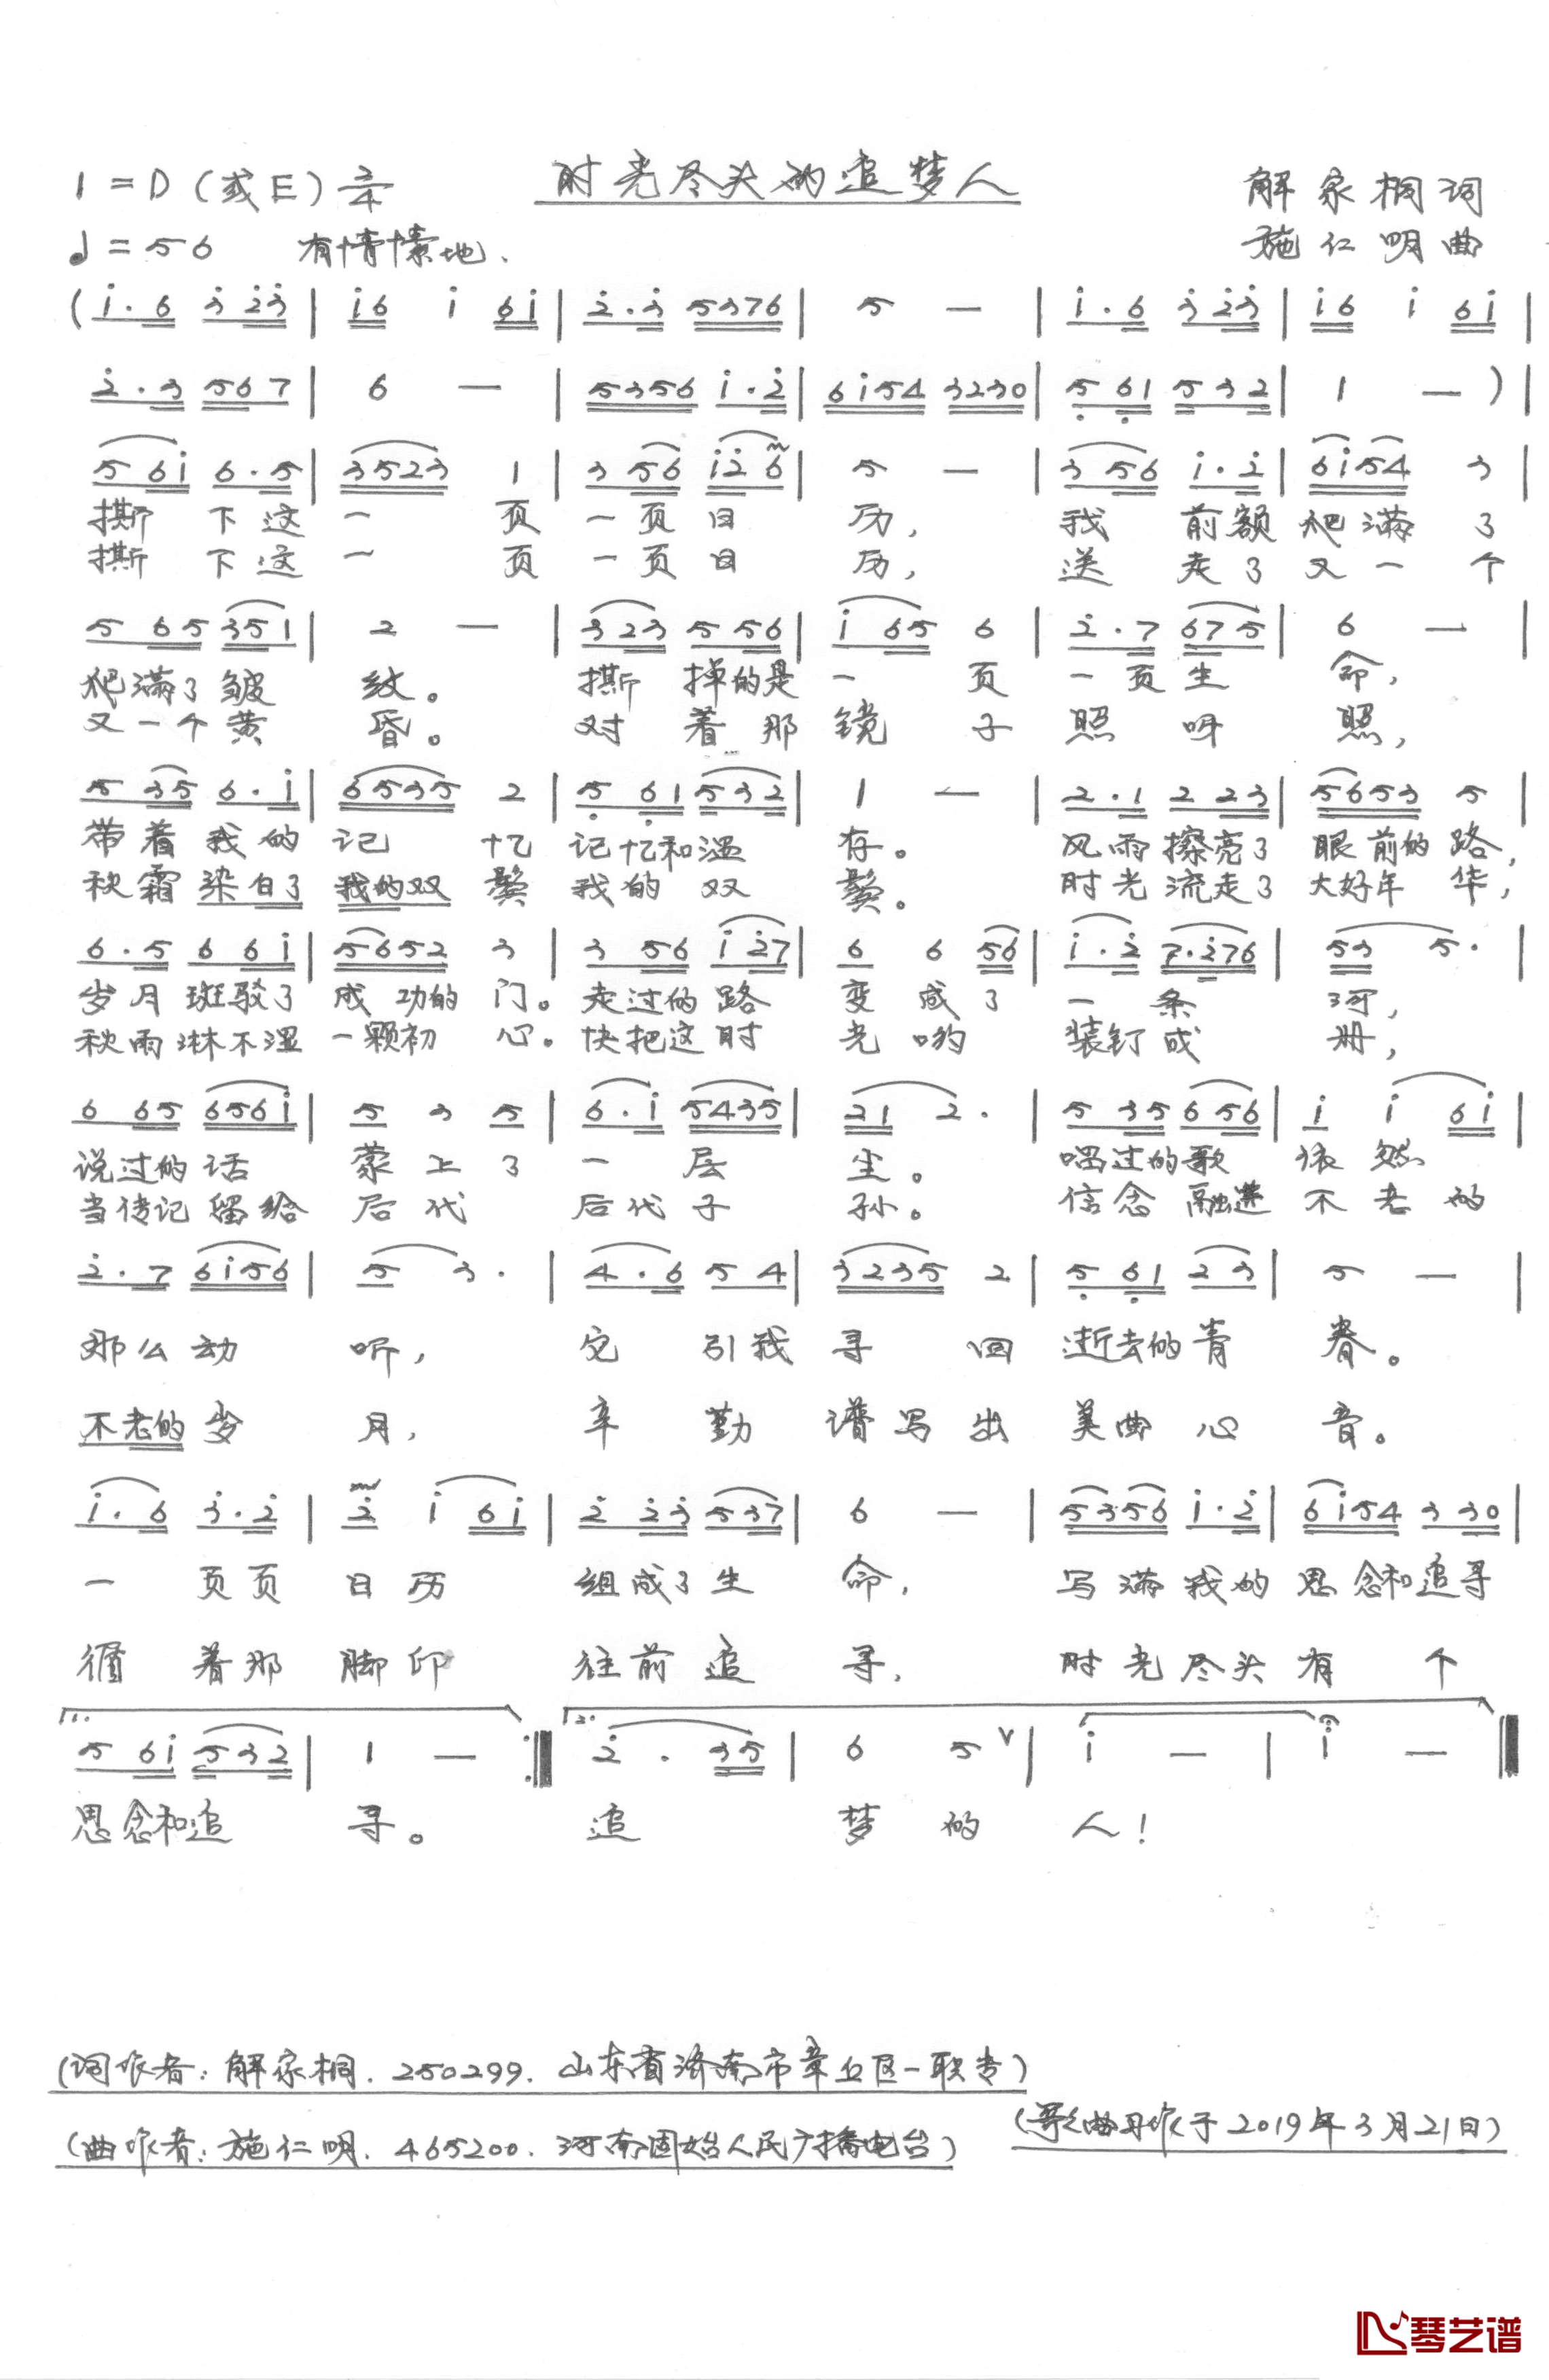 时光尽头的追梦人
1=D(或E) 2/4
解家桐词
♩=56 有情愫地.
施仁明曲
(i·6 3 23 | i6 i 6i | 2·3 5376 | 5 — | i·6 3 23 | i6 i 6i |
2·3 567 | 6 — | 5356 i·2 | 6i54 3230 | 5 61 532 | 1 — ) |
5 6i 6·5 | 3523 1 | 3 56 i2 6 | 5 — | 3 56 i·2 | 6i54 3 |
撕下这一页一页日历, 我前额爬满了
撕下这一页一页日历, 送走了又一个
5 65 351 | 2 — | 3 23 5 56 | i 65 6 | 2·7 675 | 6 — |
爬满了皱纹。 撕掉的是一页一页生命,
又一个黄昏。 对着那镜子照呀照,
5 35 6·i | 6535 2 | 5 61 532 | 1 — | 2·1 2 23 | 5653 5 |
带着我的记忆记忆和温存。 风雨擦亮了眼前的路,
秋霜染白了我的双鬓我的双鬓。 时光流走了大好年华,
6·5 6 6i | 5652 3 | 3 56 i 27 | 6 6 56 | i·2 7·276 | 53 5· |
岁月斑驳了成功的门。走过的路变成了一条河,
秋雨淋不湿一颗初心。快把这时光哟装钉成册,
6 65 656i | 5 3 5 | 6·i 5435 | 21 2· | 5 35 6 56 | i i 6i |
说过的话蒙上了一层尘。 唱过的歌依然
当传记留给后代后代子孙。 信念融进不老的
2·7 6i56 | 5 3· | 4·6 5 4 | 3235 2 | 5 61 2 3 | 5 — |
那么动听, 它引我寻回逝去的青春。
不老的岁月, 辛勤谱写出美曲心音。
i·6 3·2 | 2 i 6i | 2 23 537 | 6 — | 5356 i·2 | 6i54 3 30 |
一页页日历组成了生命, 写满我的思念和追寻
循着那脚印往前追寻, 时光尽头有个
1. 2.
5 6i 532 | 1 — :‖ 2·35 | 6 5 ∨ | i — | i — ‖
思念和追寻。 追梦的人!
(词作者:解家桐. 250299. 山东省济南市章丘区一职专)
(歌曲写作于2019年3月21日)
(曲作者:施仁明. 465200. 河南固始人民广播电台)
琴艺谱